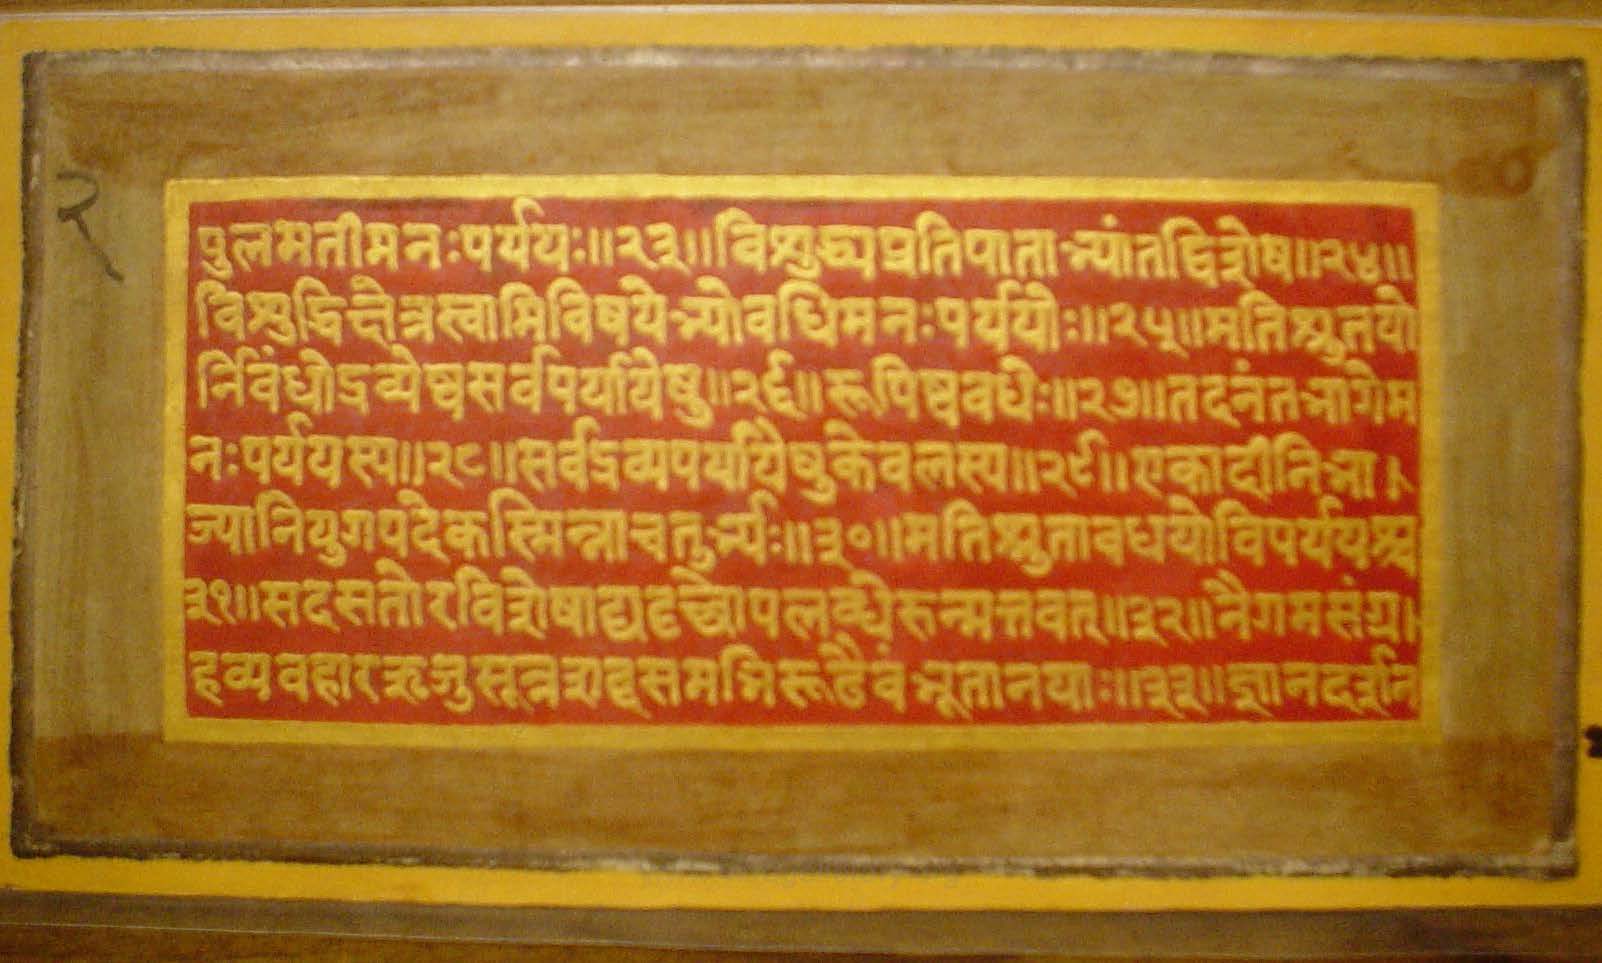 २
पुलमतीमनःपर्ययः॥२३॥विशुद्ध्यप्रतिपाताभ्यांतद्विशेष॥२४॥
विशुद्धिक्षेत्रस्वामिविषयेभ्योवधिमनःपर्यययोः॥२५॥मतिश्रुतयो
र्निवंधोद्रव्येष्वसर्वपर्यायेषु॥२६॥रूपिष्ववधेः॥२७॥तदनंतभागेम
नःपर्ययस्य॥२८॥सर्वद्रव्यपर्यायेषुकेवलस्य॥२९॥एकादीनिभा
ज्यानियुगपदेकस्मिन्नाचतुर्भ्यः॥३०॥मतिश्रुतावधयोविपर्ययश्च
३१॥सदसतोरविशेषाद्यदृच्छोपलब्धेरुन्मत्तवत्॥३२॥नैगमसंग्र
हव्यवहारऋजुसूत्रशब्दसमभिरूढैवंभूतानयाः॥३३॥ज्ञानदर्शन